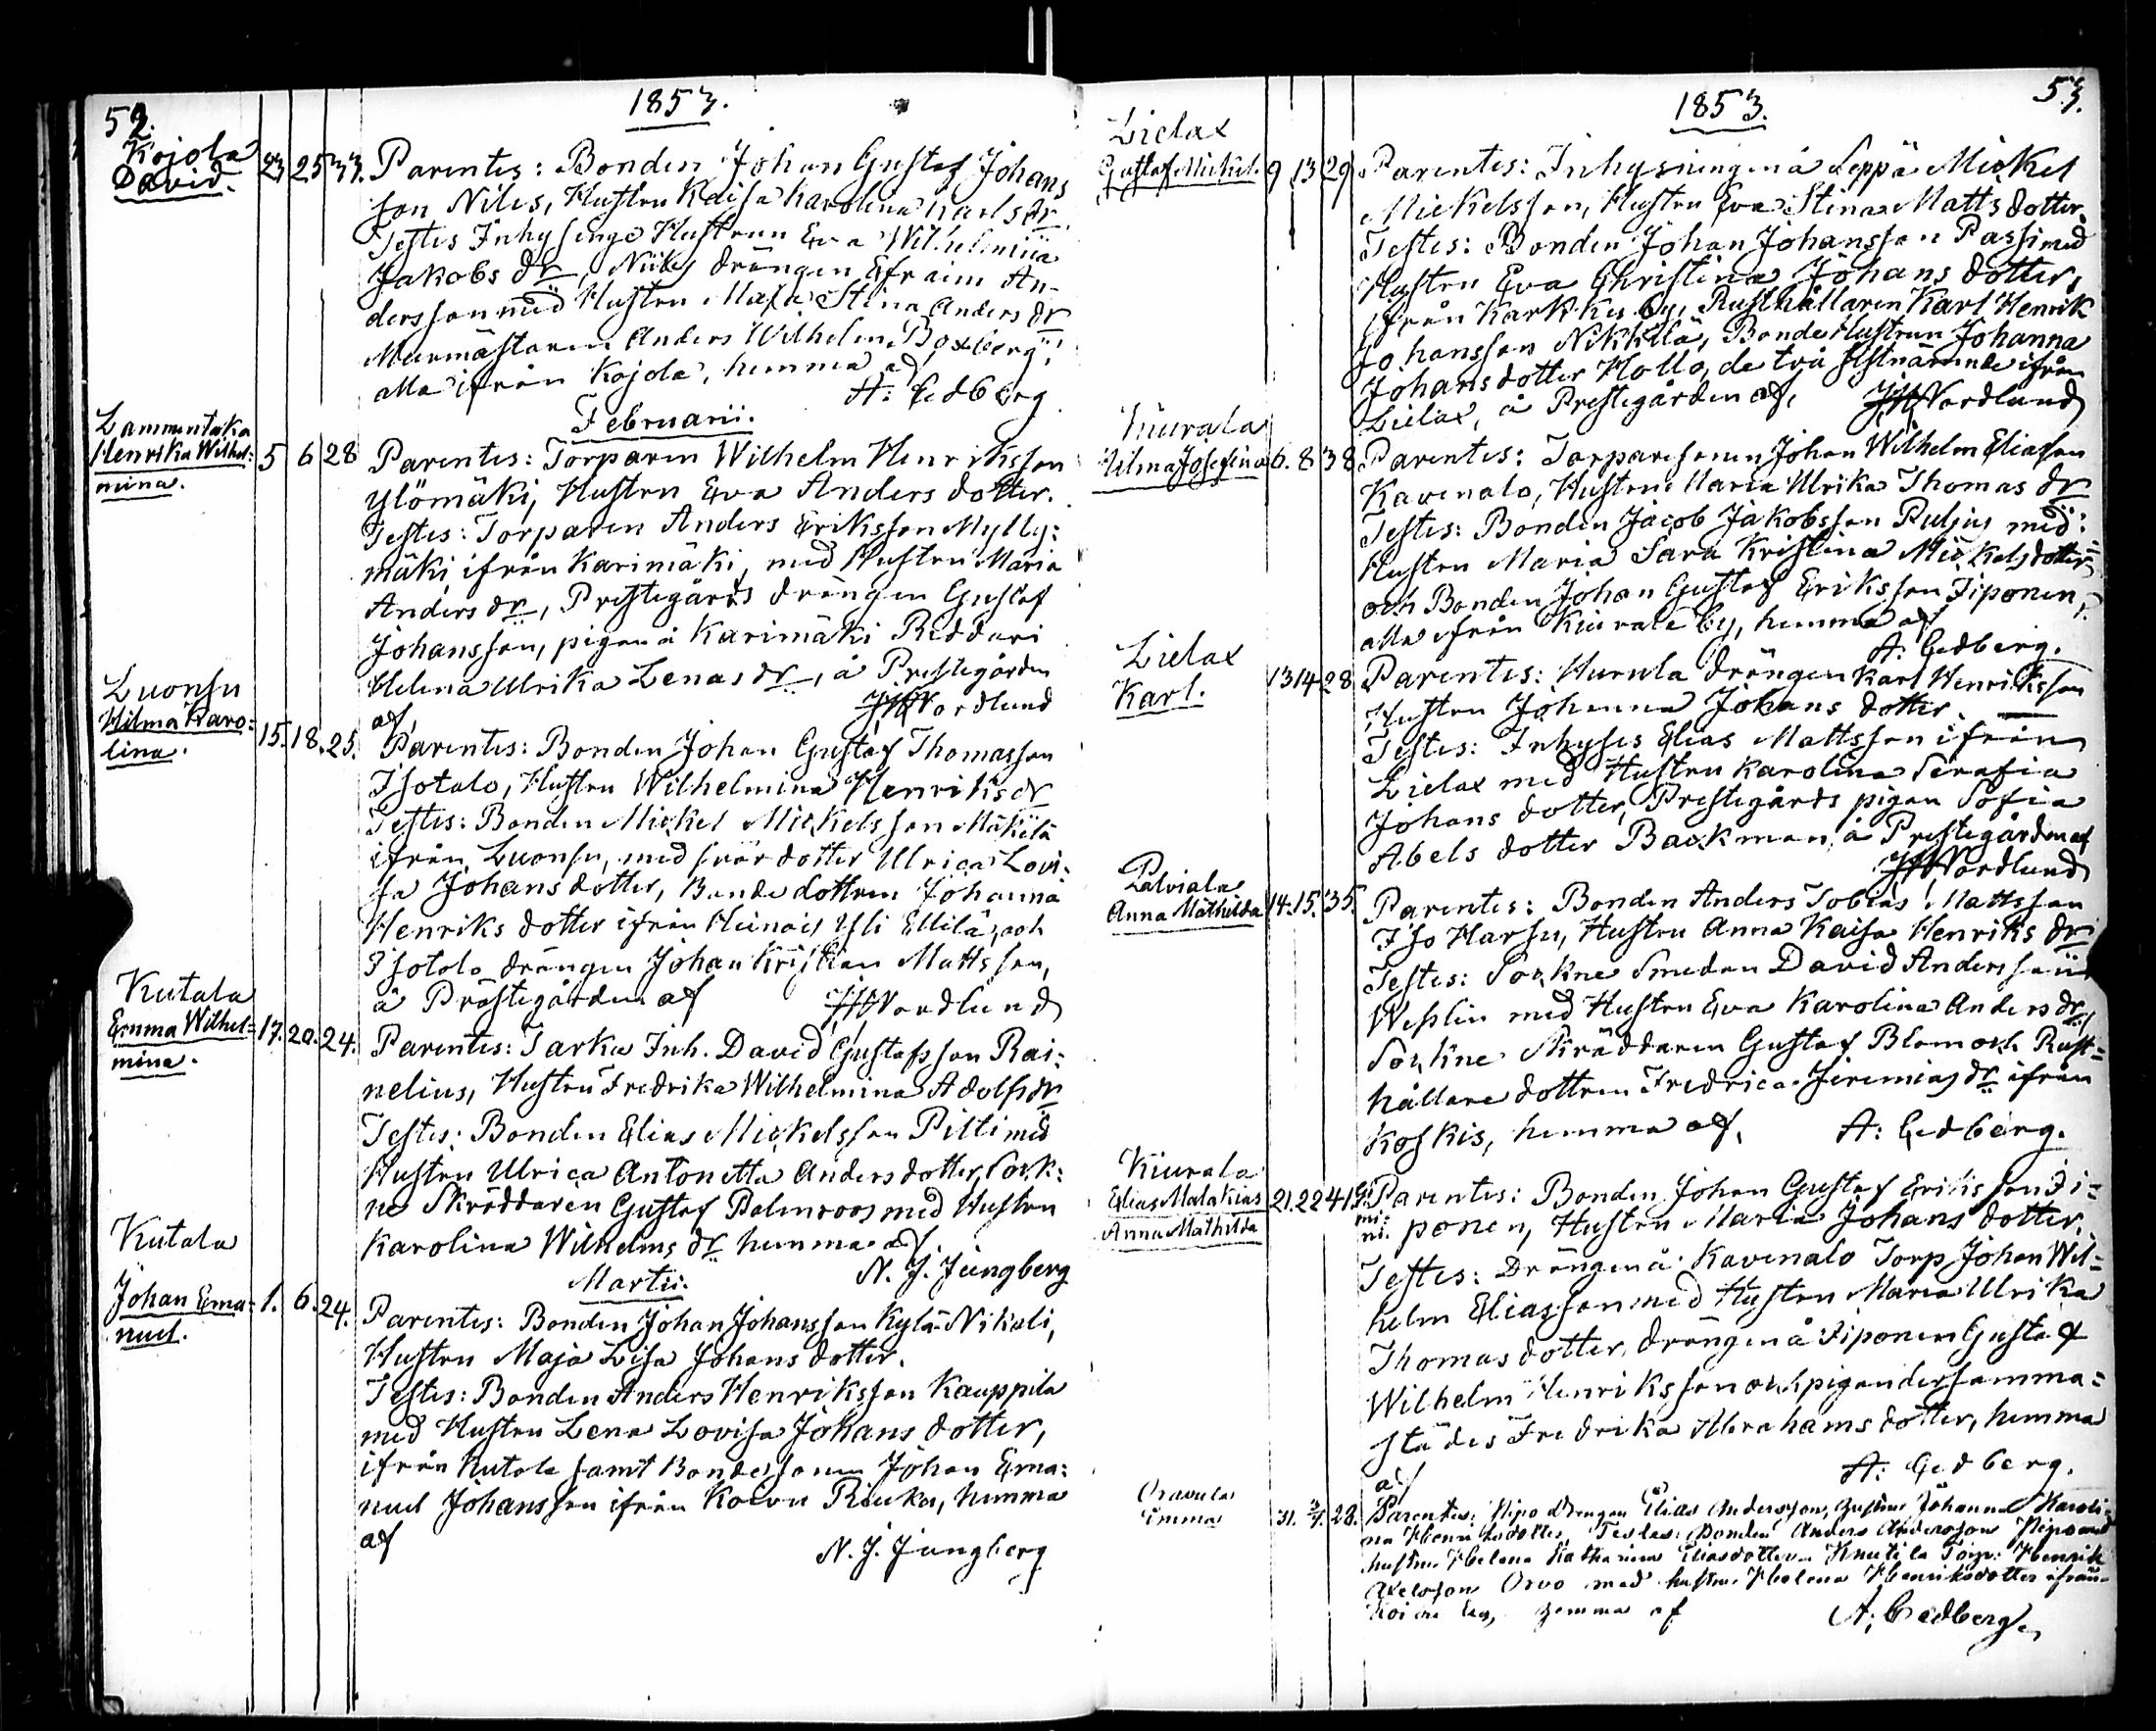 52.
1853.
Kojola
David.
23 25 33.
Parentes: Bonden Johan Gustaf Johans
son Niles, Hustru Kaisa Karolina Karls dr
Testes Inhysinge Hustrun Eva Wilhelmiia
Jakobs dr, Niiles drängen Efraim An-
dersson med Hustru Maja Stina Anders dr
Murmästaren Anders Wilhelm Boxberg,
alla ifrån Kojola, hemma af
A: Gedberg
Februarii.
Lammentaka
Henrika Wilhel:
mina.
5 6 28
Parentes: Torparen Wilhelm Henriksson
Ylömäki, Hustru Eva Anders dotter.
Testes: Torparen Anders Eriksson Mylly:
mäki ifrån Karimäki, med Hustru Maria
Anders dr, Prestegårds drängen Gustaf
Johansson, pigan å Karimäki Riddari
Helena Ulrika Lenas dr, å Prestegården
af, JHNordlund
Luonsu
Hilma Karo:
lina.
15. 18. 25.
Parentes: Bonden Johan Gustaf Thomasson
Isotalo, Hustru Wilhelmina Henriks dr
Testes: Bonden Mickel Mickelsson Mäkelä
ifrån Luonsu, med svärdotter Ulrica Lovi:
sa Johans dotter, Bonde dottren Johanna
Henriks dotter ifrån Heinois Yli Ellilä, och
Isotalo drängen Johan Kristian Mattsson,
å Prästegården af JHNordlund
Kutala
Emma Wilhel=
mina.
17. 20. 24.
Parentes: Tarka Inh. David Gustafsson Rai:
nelius, Hustru Fredrika Wilhelmina Adolfs dr
Testes: Bonden Elias Mickelsson Pilli med
Hustru Ulrica Antonetta Anders dotter, Sock:
ne Skräddaren Gustaf Palmroos med Hustru
Karolina Wilhelms dr hemma af.
N. J. Jungberg
Martii.
Kutala
Johan Ema:
nuel.
1. 6. 24.
Parentes: Bonden Johan Johansson Kylä-Nikali,
Hustru Maja Lisa Johans dotter.
Testes: Bonden Anders Henriksson Kauppila
med Hustru Lena Lovisa Johans dotter,
ifrån Kutala samt Bondesonen Johan Ema:
nuel Johansson ifrån Koivu Rieuka, hemma
af
N. J. Jungberg
53.
1853.
Lielax
Gustaf Mickel.
9 13 29
Parentes: Inhysningen å Seppä Mickel
Mickelsson, Hustru Eva Stina Matts dotter.
Testes: Bonden Johan Johansson Passi med
Hustru Eva Christina Johans dotter,
ifrån Karkkus by, Rusthållaren Karl Henrik
Johansson Nikkilä, Bonde Hustrun Johanna
Johans dotter Hollo, de två sistnämnde ifrån
Lielax, å Prestegården af, JHNordlund
Kiurala
Hilma Josefina
6. 8 38
Parentes: Torparesonen Johan Wilhelm Eliasson
Kavenalo, Hustrun Maria Ulrika Thomas dr
Testes: Bonden Jacob Jakobsson Puljus med
Hustru Maria Sara Kristina Mickels dotter
och Bonden Johan Gustaf Eriksson Jiponen,
alla ifrån Kiurala by, hemma af
A: Gedberg.
Lielax
Karl.
13 14 28
Parentes: Hurula drängen Karl Henriksson
Hustru Johanna Johans dotter.
Testes: Inhyses Elias Mattsson ifrån
Lielax med Hustru Karolina Serafia
Johans dotter, Prestegårds pigan Sofia
Abels dotter Backman, å Prestegården af
JHNordlund
Palviala
Anna Mathilda
14. 15. 35.
Parentes: Bonden Anders Tobias Mattsson
Iso Harsu, Hustru Anna Kaisa Henriks dr
Testes: Sockne Smeden David Andersson
Weslin med Hustru Eva Karolina Anders dr,
Sockne Skräddaren Gustaf Blom och Rust=
hållare dottren Fredrica Jeremias dr ifrån
Koskis, hemma af, A: Gedberg.
Kiurala
Elias Malakias
Anna Mathilda
21. 22 41
Ge:
mi:
ni.
Parentes: Bonden Johan Gustaf Eriksson Ji=
ponen, Hustru Maria Johans dotter,
Testes: Drängen å Kavenalo Torp Johan Wil=
helm Eliasson med Hustru Maria Ulrika
Thomas dotter, drängen å Jiponen Gustaf
Wilhelm Henriksson och pigan dersamma=
städes Fredrika Abrahams dotter, hemma
af A: Gedberg.
Oravula
Emma
31. 3/4. 28.
Parentes: Nipo drengen Elias Andersson, hustru Johanna Karoli=
na Henriksdotter, Testes: Bonden Anders Andersson Nipo med
hustru Helena Katharina Eliasdotter, Knutila Torp: Henrik
Axelsson Orvo med hustru Helena Henriksdotter ifrån
by, hemma af A: Gedberg